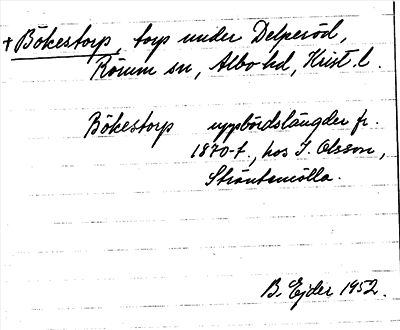 + Bökestorp, torp under Delperöd,
Rörum sn, Albo hd, Krist. l.
Bökestorp uppbördslängder fr.
1870-t., hos J. Olsson,
Ströntemölla.
B. Ejder 1952.